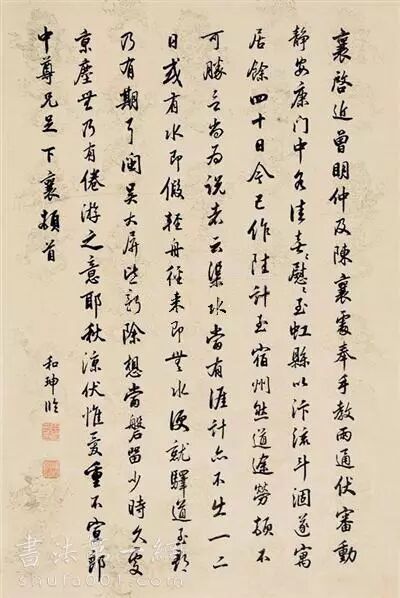 襄啓近曾明仲及陳襄處奉手教兩通伏審動
静安康门中各佳喜〻慰〻至虹縣以汴流斗涸遂寓
居餘四十日今已作陸計至宿州然道途勞頓不
可勝言尚为説者云渠水當有涯計亦不出一二
日或有水即假輕舟徑来即無水便就驛道至都
乃有期耳閩吴大屏皆新除想當磐留少時久處
京塵無乃有倦游之意耶秋涼伏惟爱重不宣郎
中尊兄足下襄頓首
和珅临
書法第一網
shufa001.com